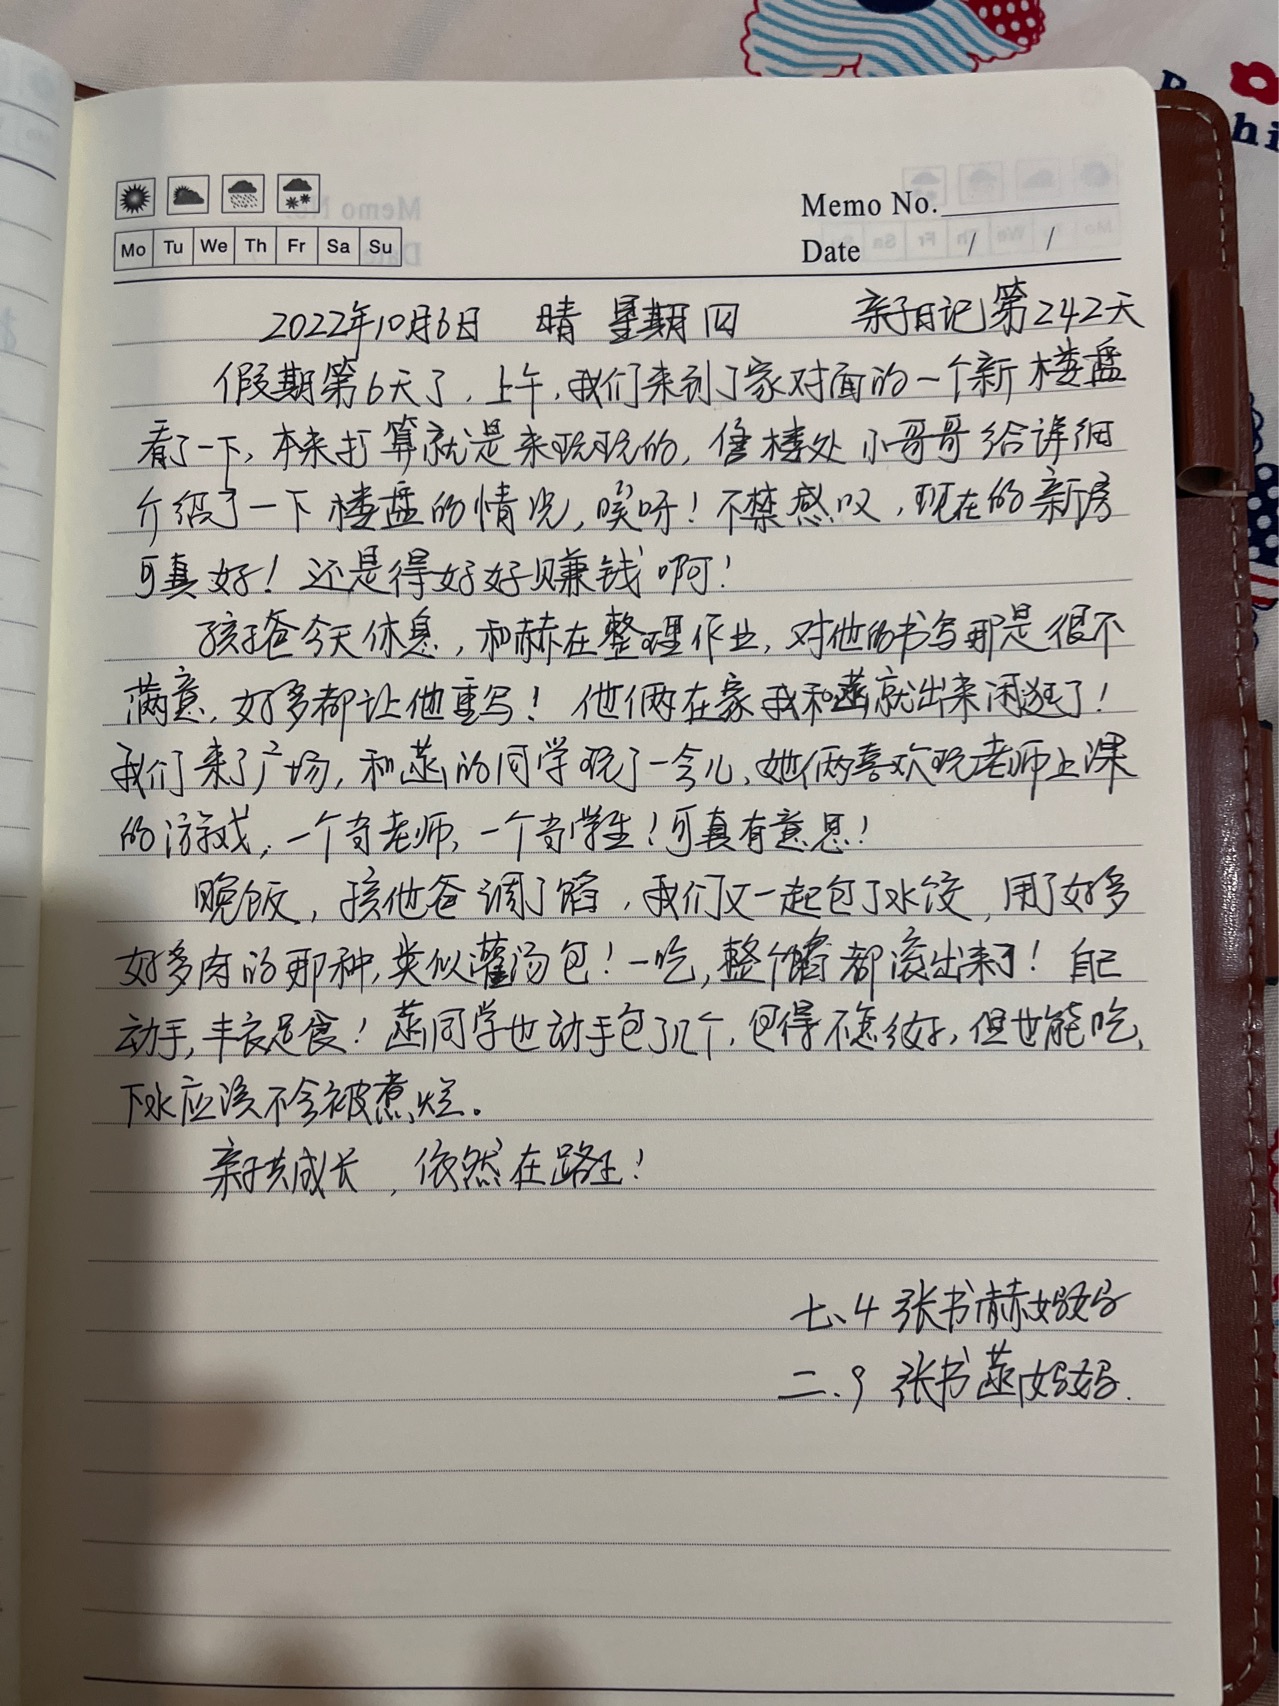 Memo No.
Mo Tu We Th Fr Sa Su
Date / /
2022年10月6日 晴 星期四 亲子日记第242天
假期第6天了,上午,我们来到了家对面的一个新楼盘
看了一下,本来打算就是来玩玩的,售楼处小哥哥给详细
介绍了一下楼盘的情况,唉呀!不禁感叹,现在的新房
可真好!还是得好好赚钱啊!
孩子爸今天休息,和赫在整理作业,对他的书写那是很不
满意,好多都让他重写!他们俩在家我和菡就出来闲逛了!
我们来了广场,和菡的同学玩了一会儿,她俩喜欢玩老师上课
的游戏,一个当老师,一个当学生!可真有意思!
晚饭,孩他爸调了馅,我们又一起包了水饺,用了好多
好多肉的那种,类似灌汤包!一吃,整个馅都滚出来了!自己
动手,丰衣足食!菡同学也动手包了几个,包得不怎么好,但也能吃,
下水应该不会被煮烂。
亲子共成长,依然在路上!
七、4 张书赫妈妈
二、9 张书菡妈妈.